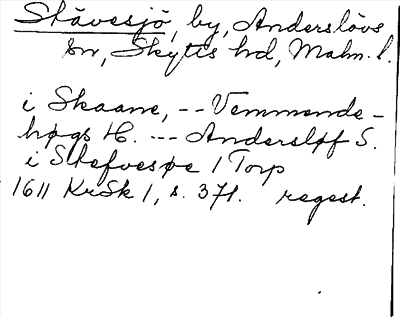 Skävesjö, by, Anderslövs
sn, Skytts hd, Malm. l.
i Skaane, -- Vemmende-
høgs H. --- Andersløf S.
i Skefvesøe 1 Torp
1611 KrSk 1, s. 371. regest.